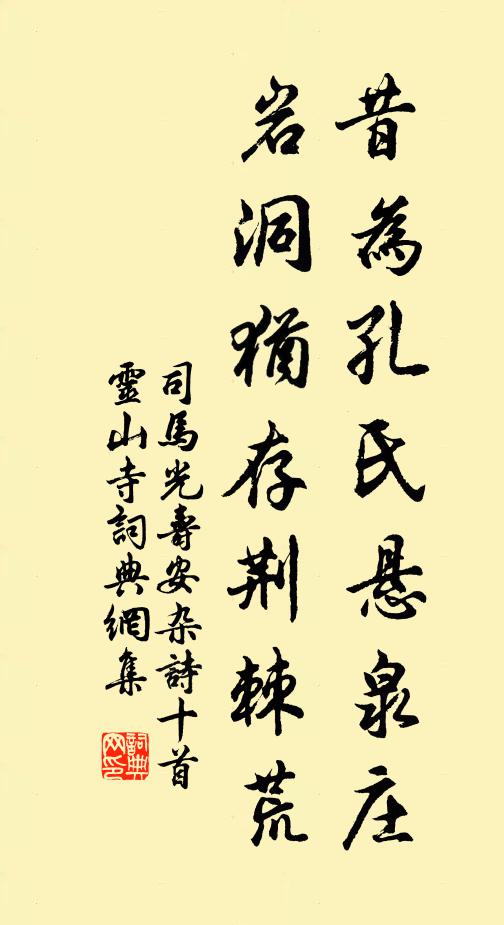 昔為孔氏悬泉庄
岩洞猶存荆棘荒
司馬光壽安杂詩十首
靈山寺詞典網集
詞典网印